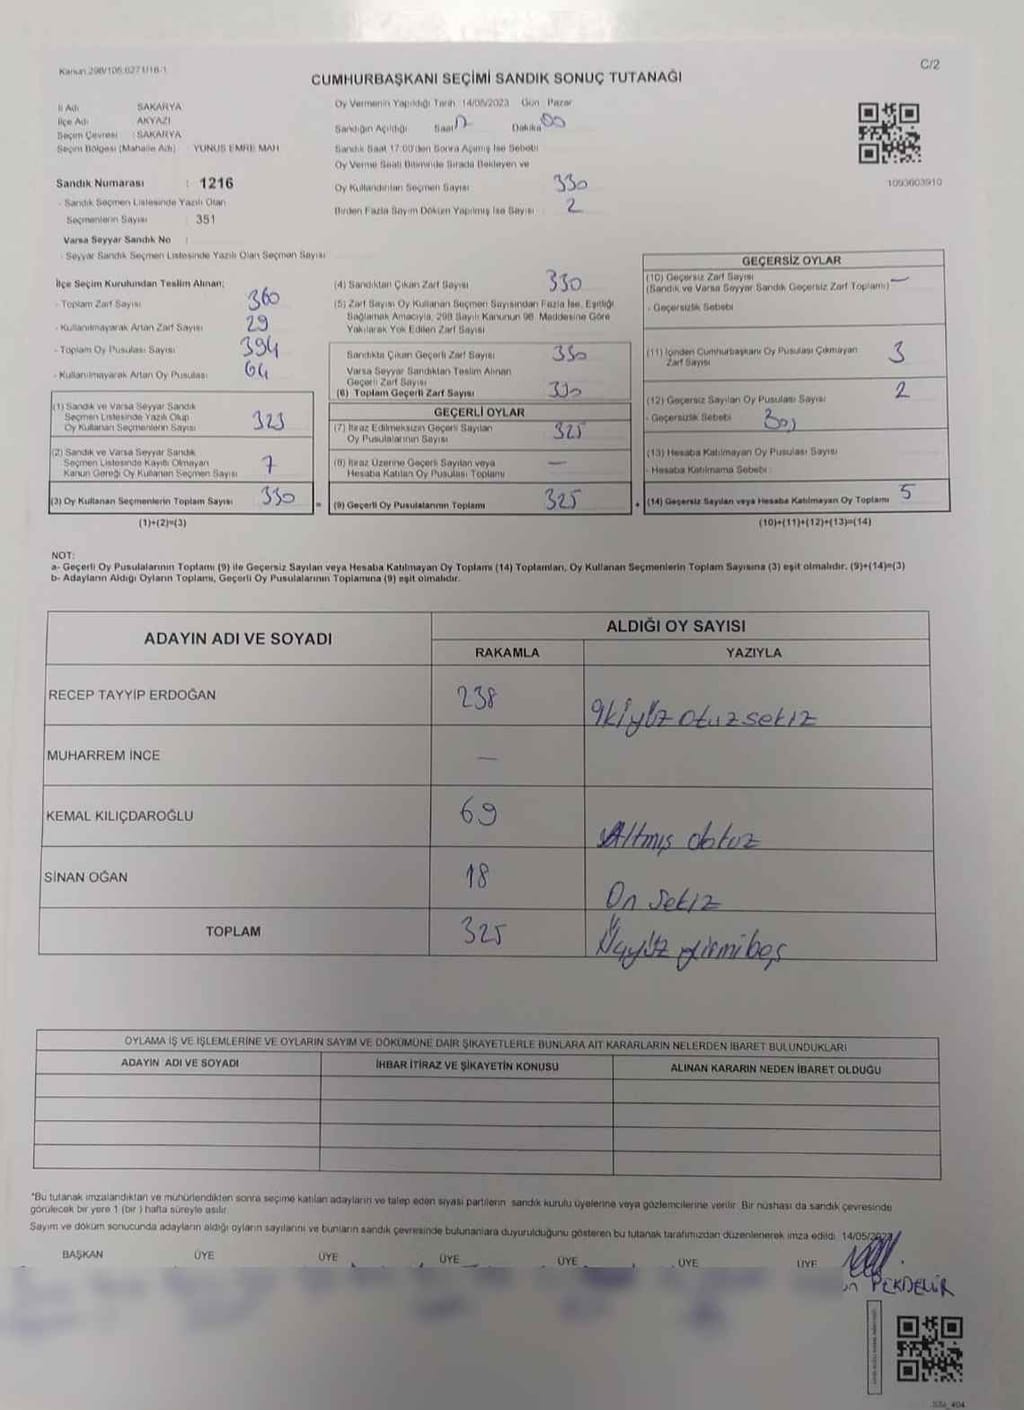 Kanun:298/105,6271/18-1
C/2
CUMHURBAŞKANI SEÇİMİ SANDIK SONUÇ TUTANAĞI
İl Adı SAKARYA
İlçe Adı AKYAZI
Seçim Çevresi : SAKARYA
Seçim Bölgesi (Mahalle Adı) YUNUS EMRE MAH
Sandık Numarası : 1216
- Sandık Seçmen Listesinde Yazılı Olan
Seçmenlerin Sayısı : 351
Varsa Seyyar Sandık No :
- Seyyar Sandık Seçmen Listesinde Yazılı Olan Seçmen Sayısı
Oy Vermenin Yapıldığı Tarih 14/05/2023 Gün Pazar
Sandığın Açıldığı Saat 17 Dakika 00
Sandık Saat 17:00'den Sonra Açılmış İse Sebebi
Oy Verme Saati Bitiminde Sırada Bekleyen ve
Oy Kullandırılan Seçmen Sayısı 330
Birden Fazla Sayım Döküm Yapılmış İse Sayısı 2
1093603910
İlçe Seçim Kurulundan Teslim Alınan;
- Toplam Zarf Sayısı 360
- Kullanılmayarak Artan Zarf Sayısı 29
- Toplam Oy Pusulası Sayısı 394
- Kullanılmayarak Artan Oy Pusulası 64
(1) Sandık ve Varsa Seyyar Sandık
Seçmen Listesinde Yazılı Olup
Oy Kullanan Seçmenlerin Sayısı 323
(2) Sandık ve Varsa Seyyar Sandık
Seçmen Listesinde Kayıtlı Olmayan
Kanun Gereği Oy Kullanan Seçmen Sayısı 7
(3) Oy Kullanan Seçmenlerin Toplam Sayısı 330
(1)+(2)=(3)
(4) Sandıktan Çıkan Zarf Sayısı 330
(5) Zarf Sayısı Oy Kullanan Seçmen Sayısından Fazla İse, Eşitliği
Sağlamak Amacıyla, 298 Sayılı Kanunun 98. Maddesine Göre
Yakılarak Yok Edilen Zarf Sayısı
Sandıkta Çıkan Geçerli Zarf Sayısı 330
Varsa Seyyar Sandıktan Teslim Alınan
Geçerli Zarf Sayısı
(6) Toplam Geçerli Zarf Sayısı 330
GEÇERLİ OYLAR
(7) İtiraz Edilmeksizin Geçerli Sayılan
Oy Pusulalarının Sayısı 325
(8) İtiraz Üzerine Geçerli Sayılan veya
Hesaba Katılan Oy Pusulası Toplamı —
= (9) Geçerli Oy Pusulalarının Toplamı 325
GEÇERSİZ OYLAR
(10) Geçersiz Zarf Sayısı
(Sandık ve Varsa Seyyar Sandık Geçersiz Zarf Toplamı) —
- Geçersizlik Sebebi
(11) İçinden Cumhurbaşkanı Oy Pusulası Çıkmayan
Zarf Sayısı 3
(12) Geçersiz Sayılan Oy Pusulası Sayısı 2
- Geçersizlik Sebebi Boş
(13) Hesaba Katılmayan Oy Pusulası Sayısı
- Hesaba Katılmama Sebebi :
+ (14) Geçersiz Sayılan veya Hesaba Katılmayan Oy Toplamı 5
(10)+(11)+(12)+(13)=(14)
NOT:
a- Geçerli Oy Pusulalarının Toplamı (9) ile Geçersiz Sayılan veya Hesaba Katılmayan Oy Toplamı (14) Toplamları, Oy Kullanan Seçmenlerin Toplam Sayısına (3) eşit olmalıdır. (9)+(14)=(3)
b- Adayların Aldığı Oyların Toplamı, Geçerli Oy Pusulalarının Toplamına (9) eşit olmalıdır.
ADAYIN ADI VE SOYADI
ALDIĞI OY SAYISI
RAKAMLA YAZIYLA
RECEP TAYYİP ERDOĞAN 238 ikiyüz otuzsekiz
MUHARREM İNCE —
KEMAL KILIÇDAROĞLU 69 Altmış dokuz
SİNAN OĞAN 18 On sekiz
TOPLAM 325 Üçyüz yirmibeş
OYLAMA İŞ VE İŞLEMLERİNE VE OYLARIN SAYIM VE DÖKÜMÜNE DAİR ŞİKAYETLERLE BUNLARA AİT KARARLARIN NELERDEN İBARET BULUNDUKLARI
ADAYIN ADI VE SOYADI İHBAR İTİRAZ VE ŞİKAYETİN KONUSU ALINAN KARARIN NEDEN İBARET OLDUĞU
*Bu tutanak imzalandıktan ve mühürlendikten sonra seçime katılan adayların ve talep eden siyasi partilerin sandık kurulu üyelerine veya gözlemcilerine verilir. Bir nüshası da sandık çevresinde
görülecek bir yere 1 (bir ) hafta süreyle asılır.
Sayım ve döküm sonucunda adayların aldığı oyların sayılarını ve bunların sandık çevresinde bulunanlara duyurulduğunu gösteren bu tutanak tarafımızdan düzenlenerek imza edildi. 14/05/2023
BAŞKAN ÜYE ÜYE ÜYE ÜYE ÜYE ÜYE
PEKDELİR